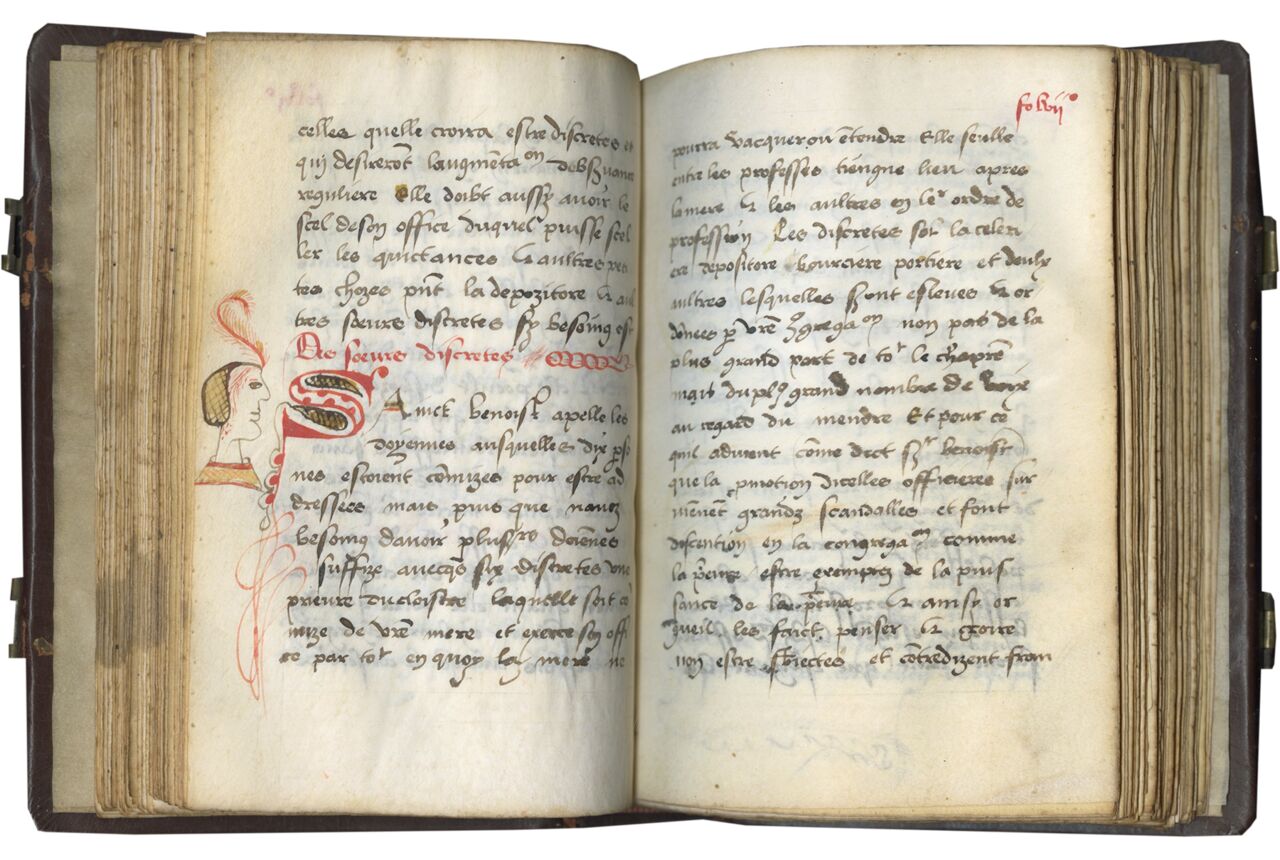 celles quelle croira estre discretes et
qui desirerõt laugmentaon dobs̃uance
reguliere Elle doibt aussy auoir le
scel deson office duquel puisse scel
ler les quictances & aultres peti
tes chozes pñt la depozitore & aul
tres sœurs discretes sy besoing est
Des sœurs discretes
SAinct benoist apelle les
doyennes ausquelles dix ꝑso
nes estoient cõmizes pour estre ad
dressees mais puis que nauez
besoing dauoir plusrs doiẽnes
suffize auecqs six discretes vne
prieure ducloistre laquelle soit cõ
mize de vr̃e mere et exerce son offi
ce par tor en quoy la mere ne
fo lxvii
pourra vacquer ou ẽtendre Elle seulle
entre les professes tiengne lieu apres
lamere & les aultres en ler ordre de
profession Les discretes sõt la celeri
ere depozitore bourciere portiere et deulx
aultres lesquelles s̃ont esleues & or
dõnees ꝑ vr̃e ꝯgregaon non pas de la
plus grand part de tot le chap̃re
mais du plꝰ grand nombre de voix
au regard du mendre Et pour ce
quil aduient cõme dict sainct benoist
que la ꝓmotion dicelles officieres sur
uienẽt grandz scandalles et font
discention en la congregaon comme
la p̃eure estre exemptez de la puis
sance de la p̃eure & ainsy or
gueil les faict penser & gloire
non estre s̃biectes et cõtredizent fran